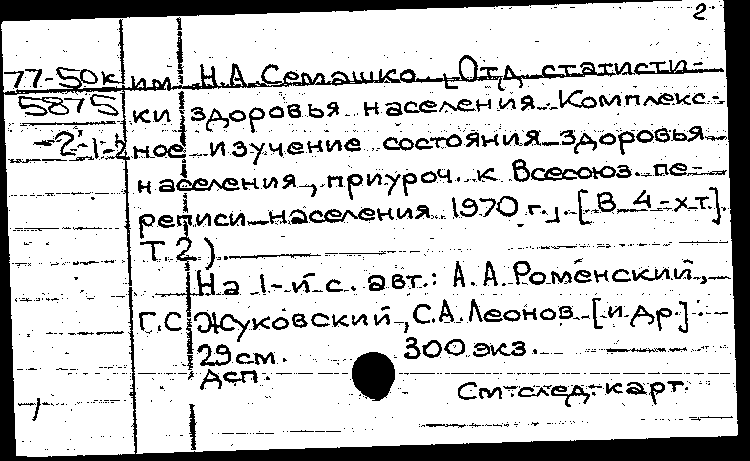 2
77-50к им. Н.А. Семашко. Отд. статисти-
5875 ки здоровья населения. Комплекс-
-2-1-2 ное изучение состояния здоровья
населения, приуроч. к Всесоюз. пе-
реписи населения 1970 г.⌋. [В 4-х т.].
Т. 2).
На 1-й с. авт.: А.А. Роменский,
Г.С. Жуковский, С.А. Леонов [и др.].
29 см. 300 экз.
дсп.
См. след. карт.